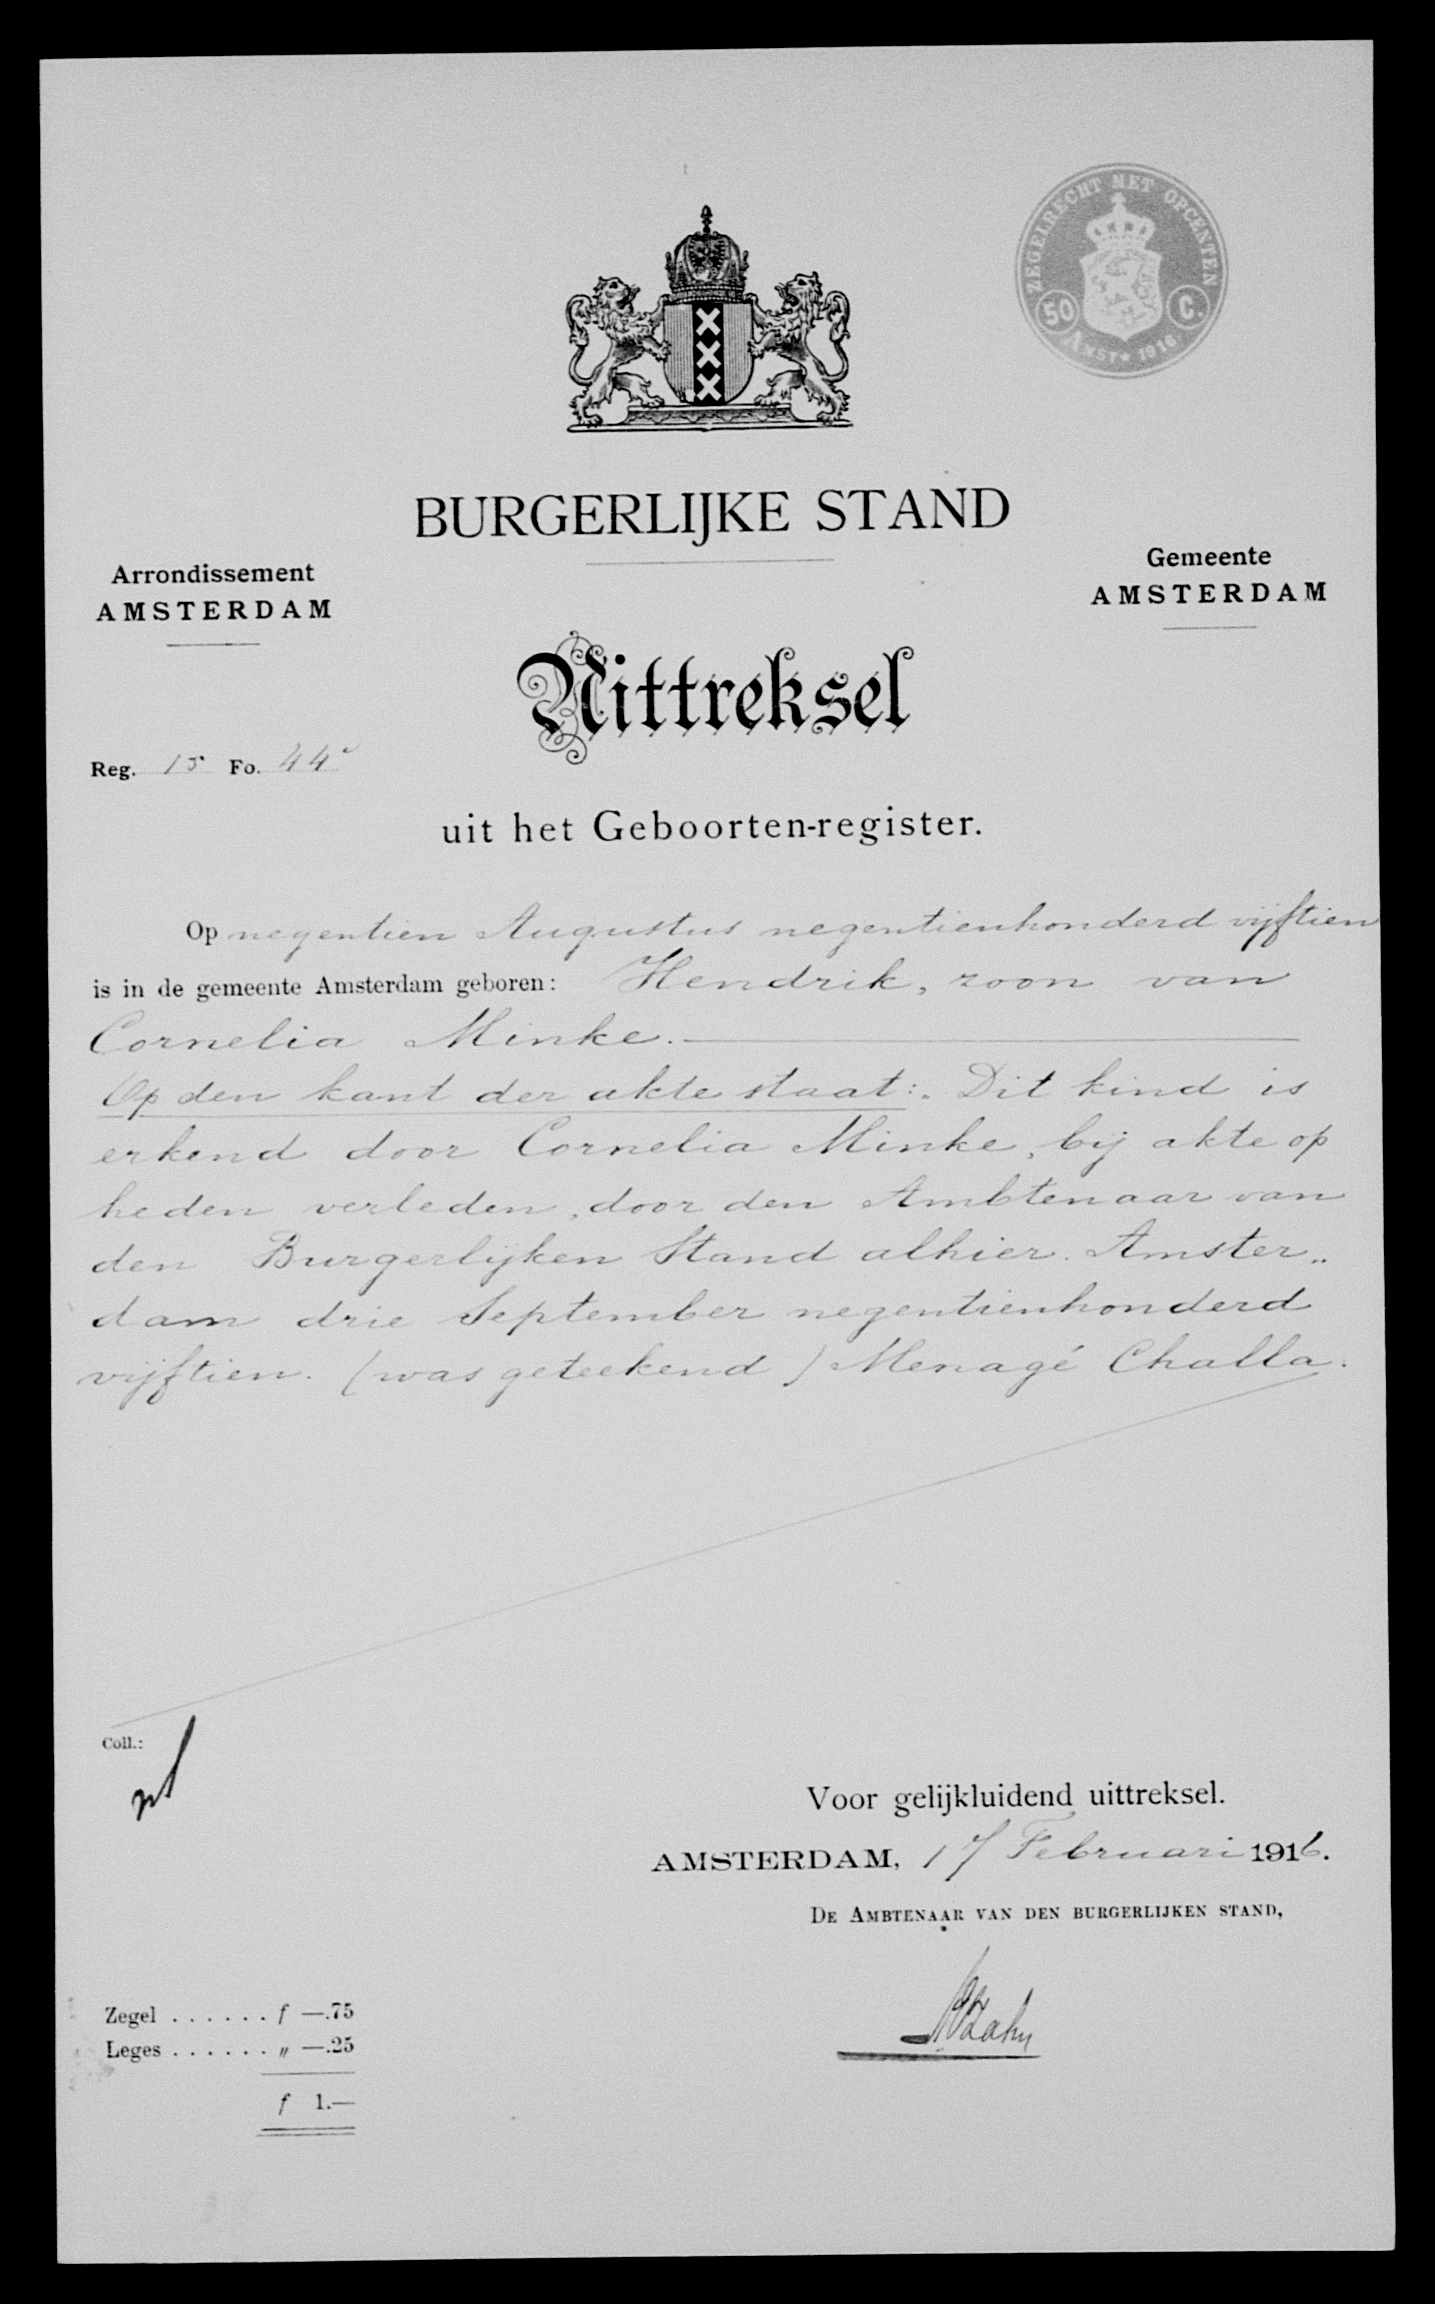 ZEGELRECHT MET OPCENTEN
50 C.
AMST * 1916
BURGERLIJKE STAND
Arrondissement
AMSTERDAM
Gemeente
AMSTERDAM
Uittreksel
Reg. 15 Fo. 44
uit het Geboorten-register.
Op negentien Augustus negentienhonderd vijftien
is in de gemeente Amsterdam geboren: Hendrik, zoon van
Cornelia Minke.
Op den kant der akte staat:. Dit kind is
erkend door Cornelia Minke, bij akte op
heden verleden, door den Ambtenaar van
den Burgerlijken Stand alhier. Amster„
dam drie September negentienhonderd
vijftien. (was geteekend) Menagé Challa.
Coll.:
Voor gelijkluidend uittreksel.
AMSTERDAM, 17 Februari 1916.
DE AMBTENAAR VAN DEN BURGERLIJKEN STAND,
Zegel . . . . . . f —.75
Leges . . . . . . „ —.25
f 1.—